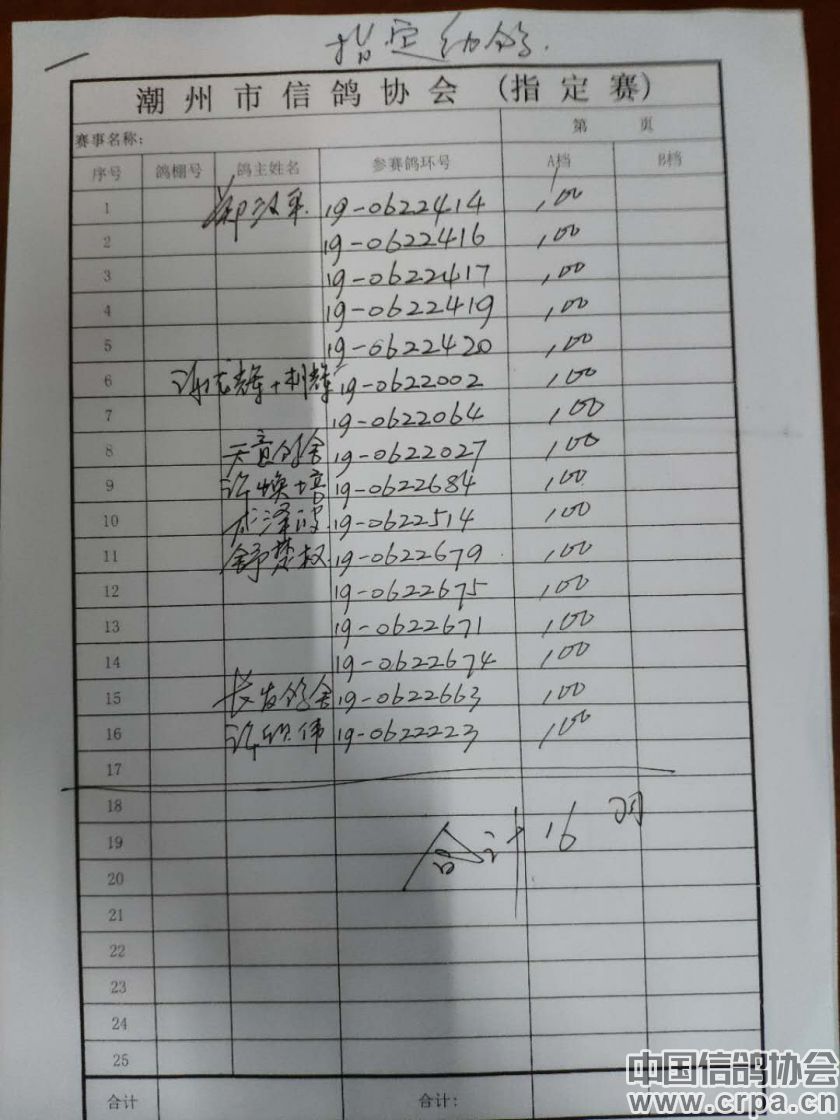 指定幼鸽.
潮州市信鸽协会（指定赛）
赛事名称: 第 页
序号 鸽棚号 鸽主姓名 参赛鸽环号 A档 B档
1 19-0622414 100
2 19-0622416 100
3 19-0622417 100
4 19-0622419 100
5 19-0622420 100
6 19-0622002 100
7 19-0622064 100
8 天音鸽舍 19-0622027 100
9 许焕培 19-0622684 100
10 19-0622514 100
11 舒楚权 19-0622679 100
12 19-0622675 100
13 19-0622671 100
14 19-0622674 100
15 长发鸽舍 19-0622663 100
16 19-0622223 100
17
18
19 合计16羽
20
21
22
23
24
25
合计 合计:
中国信鸽协会
www.crpa.cn